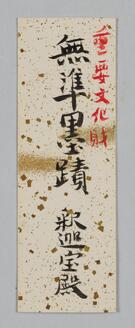 重要文化財
無準墨蹟 釈迦宝殿